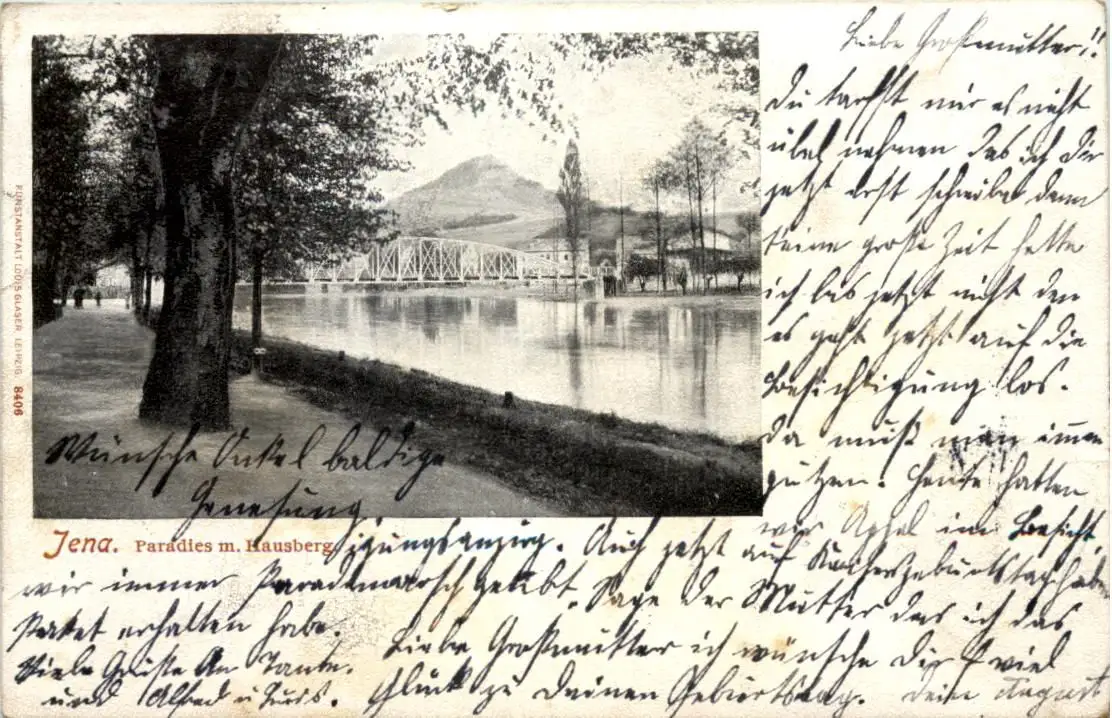 Liebe Großmutter!!
Du darfst mir es nicht
übel nehmen das ich Dir
jetzt erst schreibe denn
keine große Zeit hatte
ich bis jetzt nicht den
es geht jetzt auf die
Besichtigung los.
Da muß man immer
putzen. Heute hatten
wir Aphel im Besicht
igungsanzug. Auch jetzt auf Kaisersgeburtstag hab
wir immer Parademarsch geübt. Sage der Mutter das ich das
Packet erhalten habe. Liebe Großmutter ich wünsche Dir viel
Glück zu Deinen Geburtstag. Dein August
Viele Grüße An Tante.
und Alfred u
Wünsche Onkel baldige
Genesung
Jena. Paradies m. Hausberg.
KUNSTANSTALT LOUIS GLASER, LEIPZIG. 8406